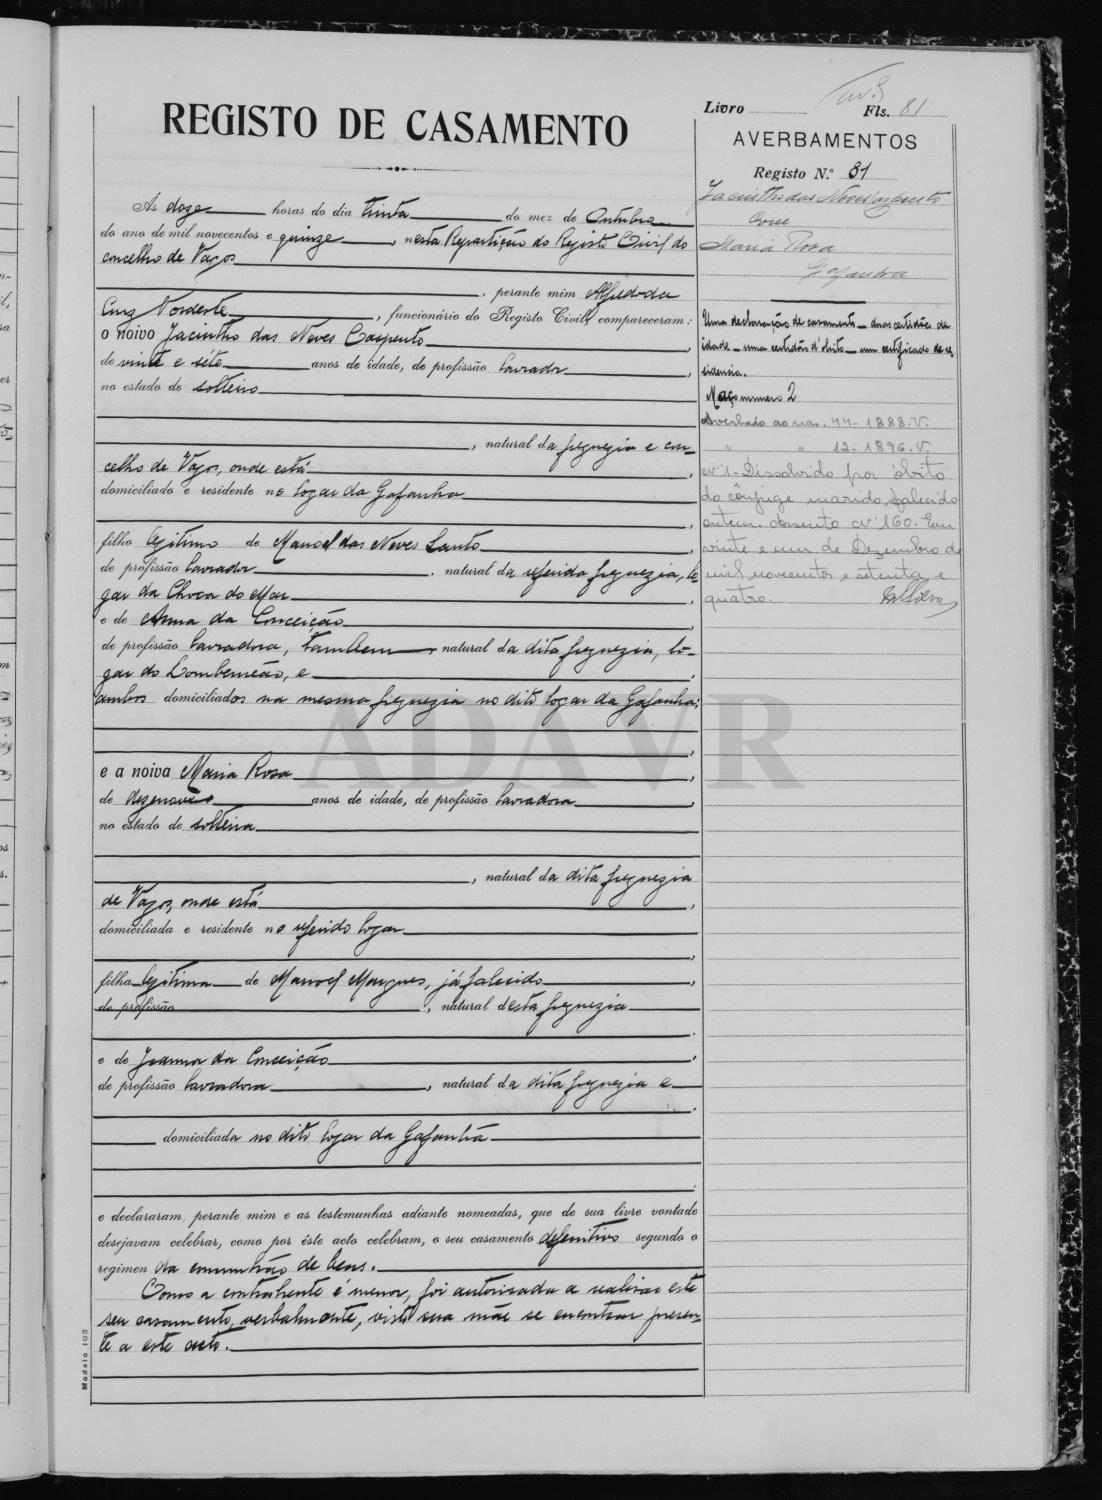 Livro Fls. 81
REGISTO DE CASAMENTO
AVERBAMENTOS
Registo N.º 81
Jacintho das Neves Carpento
com
Maria Rosa
Gafanha
Às doze horas do dia trinta do mez de Outubro
do ano de mil novecentos e quinze, nesta Repartição do Registo Civil do
concelho de Vagos
, perante mim Alfredo da
Cruz Nordeste, funcionário do Registo Civil, compareceram:
o noivo Jacintho das Neves Carpento,
de vinte e sete anos de idade, de profissão lavrador,
no estado de solteiro
, natural da freguezia e con-
celho de Vagos, onde está,
domiciliado e residente no logar da Gafanha
,
filho legitimo de Manoel das Neves Santo,
de profissão lavrador, natural da referida freguezia, lo-
gar da Choca do Mar,
e de Anna da Conceição,
de profissão lavradora, tambem natural da dita freguezia, lo-
gar do Lombomeão, e,
ambos domiciliados na mesma freguezia no dito logar da Gafanha;
,
e a noiva Maria Rosa,
de dezenove anos de idade, de profissão lavradora,
no estado de solteira
, natural da dita freguezia
de Vagos, onde está,
domiciliada e residente no referido logar
,
filha legitima de Manoel Marques, já falecido,
de profissão, natural desta freguezia
,
e de Joanna da Conceição,
de profissão lavradora, natural da dita freguezia e
,
domiciliada no dito logar da Gafanha
,
e declararam perante mim e as testemunhas adiante nomeadas, que de sua livre vontade
desejavam celebrar, como por êste acto celebram, o seu casamento definitivo segundo o
regimen da communhão de bens.
Como a contrahente é menor, foi autorisada a realisar este
seu casamento, verbalmente, visto sua mãe se encontrar presen-
te a este acto.
Modelo 103
Uma declaração de casamento - duas certidões de
idade - uma certidão d'óbito - um certificado de re-
sidencia.
Maço numero 2
Averbado ao nas. 44-1888-V.
" " 12-1896.V.
Nº 1 - Dissolvido por óbito
do cônjuge marido, falecido
ontem. Assento nº 160. Em
vinte e um de Dezembro de
mil novecentos e setenta e
quatro.
ADAVR